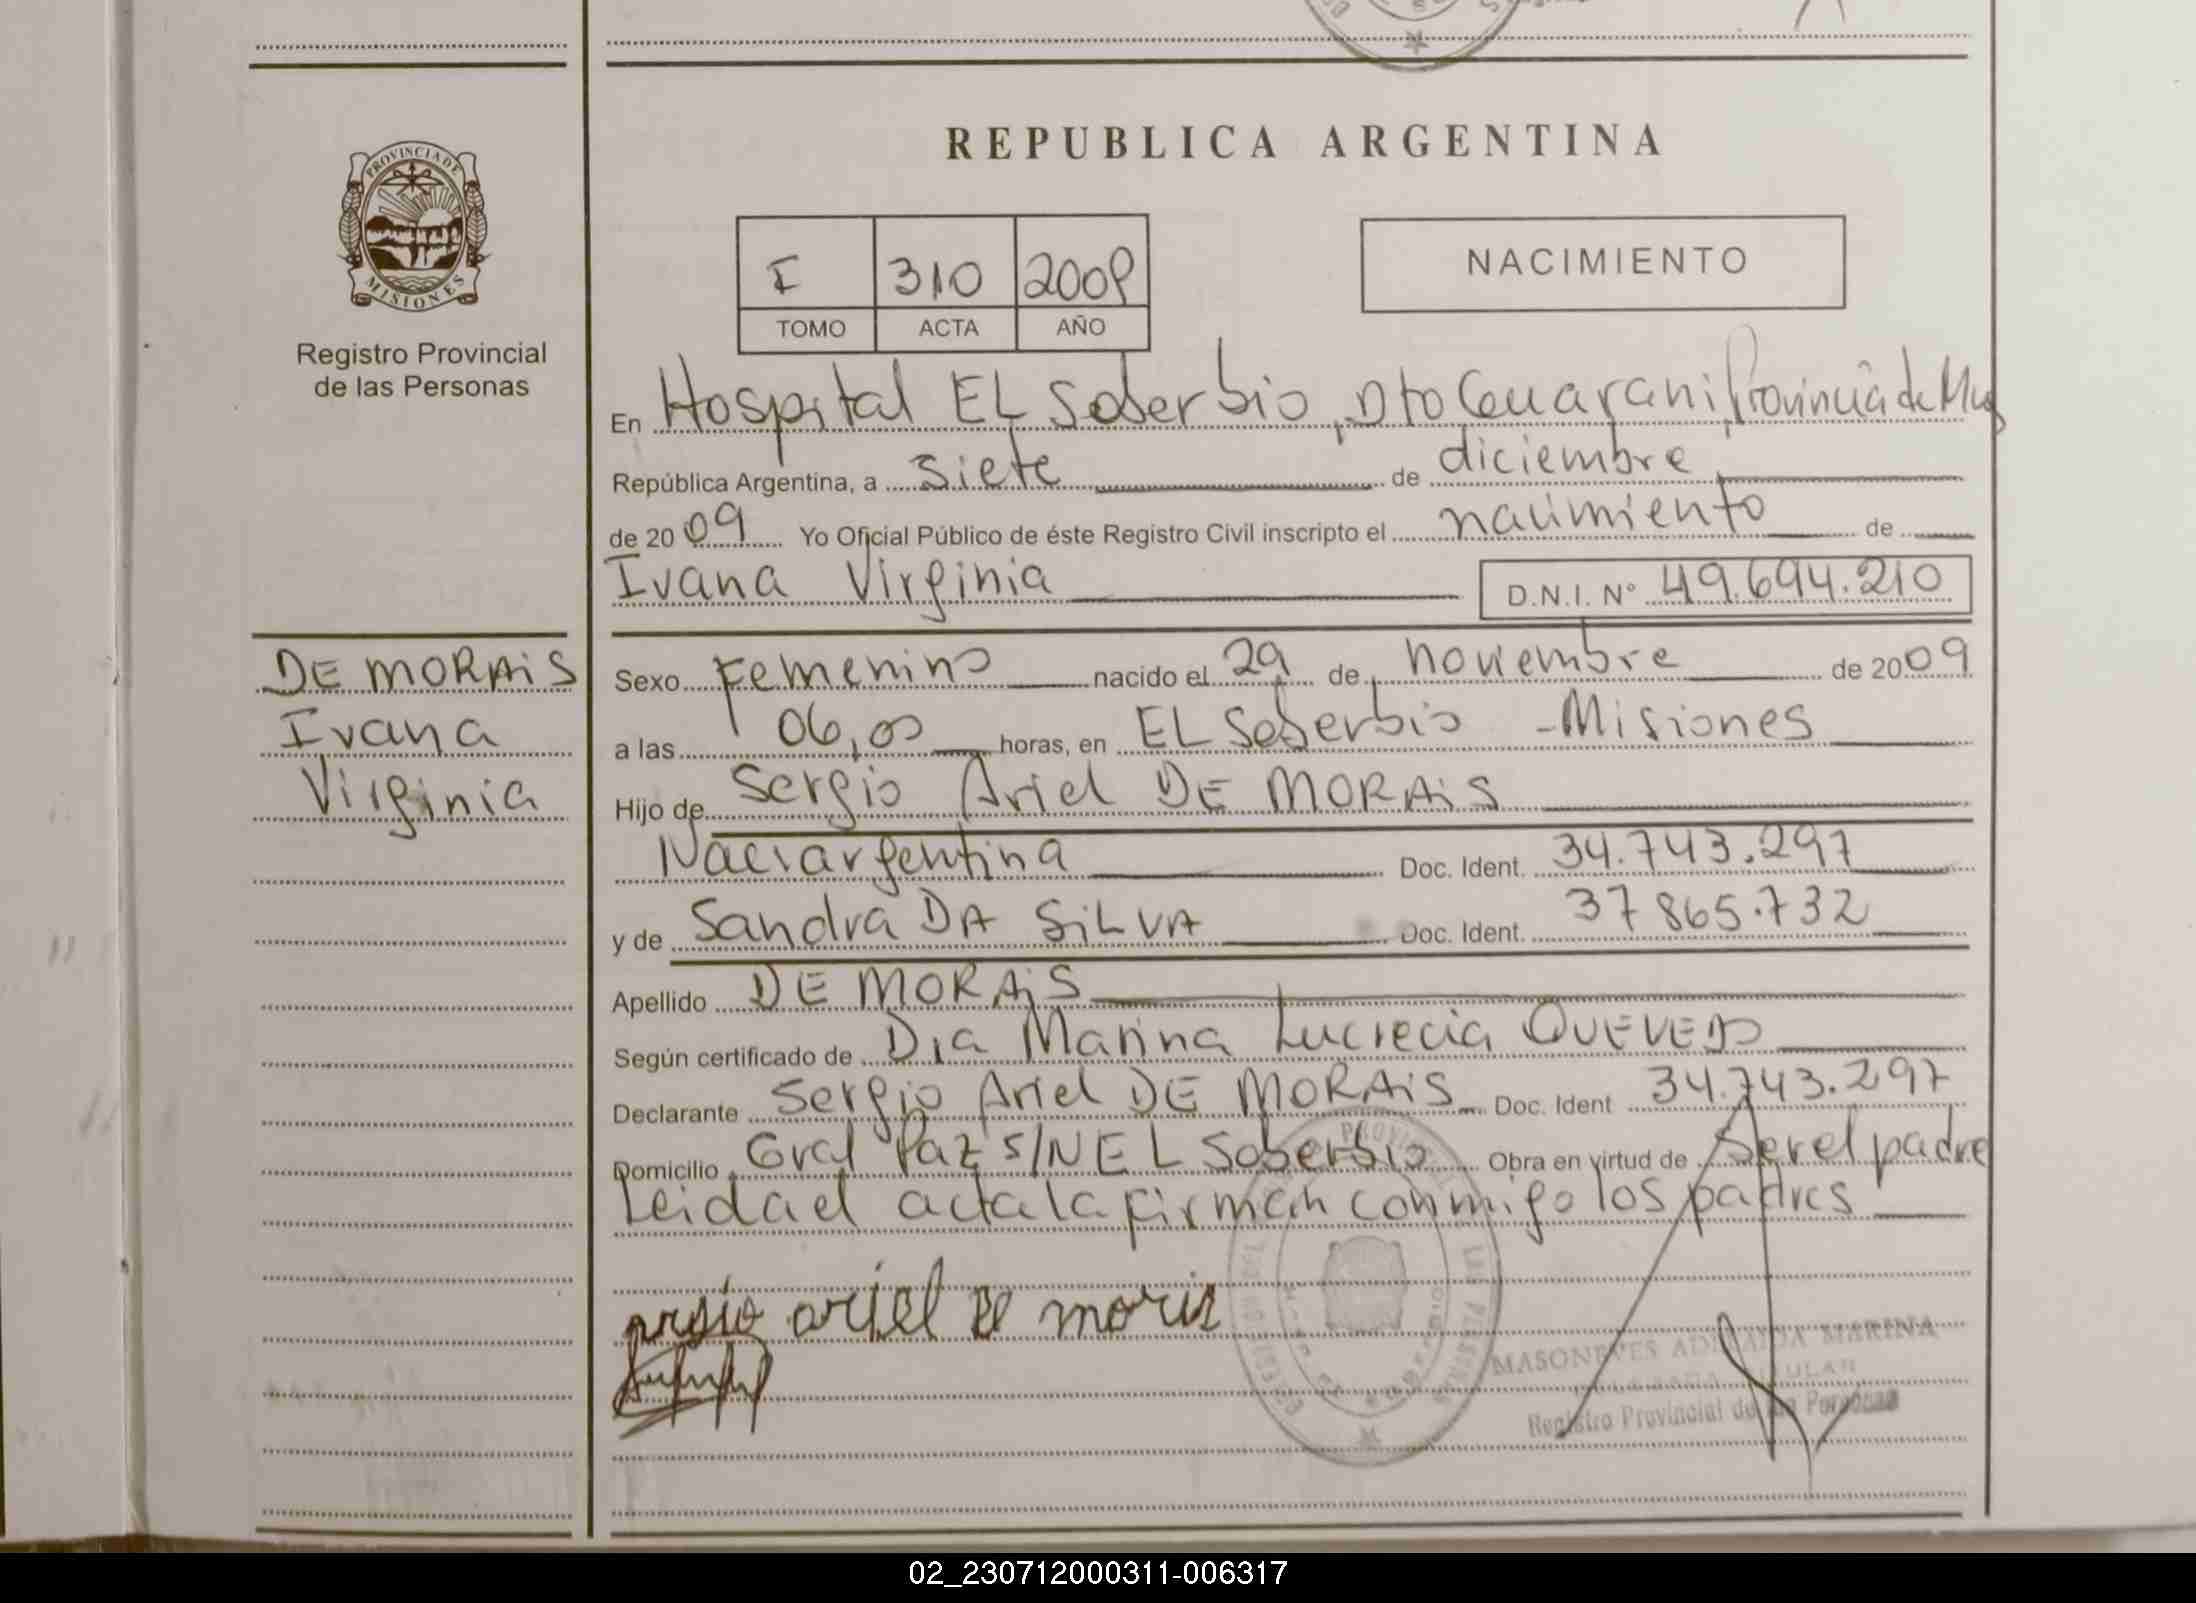 REPUBLICA ARGENTINA
PROVINCIA DE
MISIONES
Registro Provincial
de las Personas
I 310 2009
TOMO ACTA AÑO
NACIMIENTO
En Hospital EL Soberbio, Dto Guarani, Provincia de Mnes
República Argentina, a siete de diciembre
de 2009 Yo Oficial Público de éste Registro Civil inscripto el nacimiento de
Ivana Virginia D.N.I. Nº 49.694.210
DE MORAiS
Ivana
Virginia
Sexo Femenino nacido el 29 de noviembre de 2009
a las 06,00 horas, en EL Soberbio - Misiones
Hijo de Sergio Ariel DE MORAiS
Nac: argentina Doc. Ident. 34.743.297
y de Sandra DA SiLVA Doc. Ident. 37865.732
Apellido DE MORAiS
Según certificado de Dra Marina Lucrecia QUEVEDO
Declarante Sergio Ariel DE MORAiS Doc. Ident 34.743.297
Domicilio Gral Paz S/N EL Soberbio Obra en virtud de Ser el padre
Leida el acta la firman conmigo los padres
ariel de moris
MARINA
Registro Provincial de las Personas
02_230712000311-006317